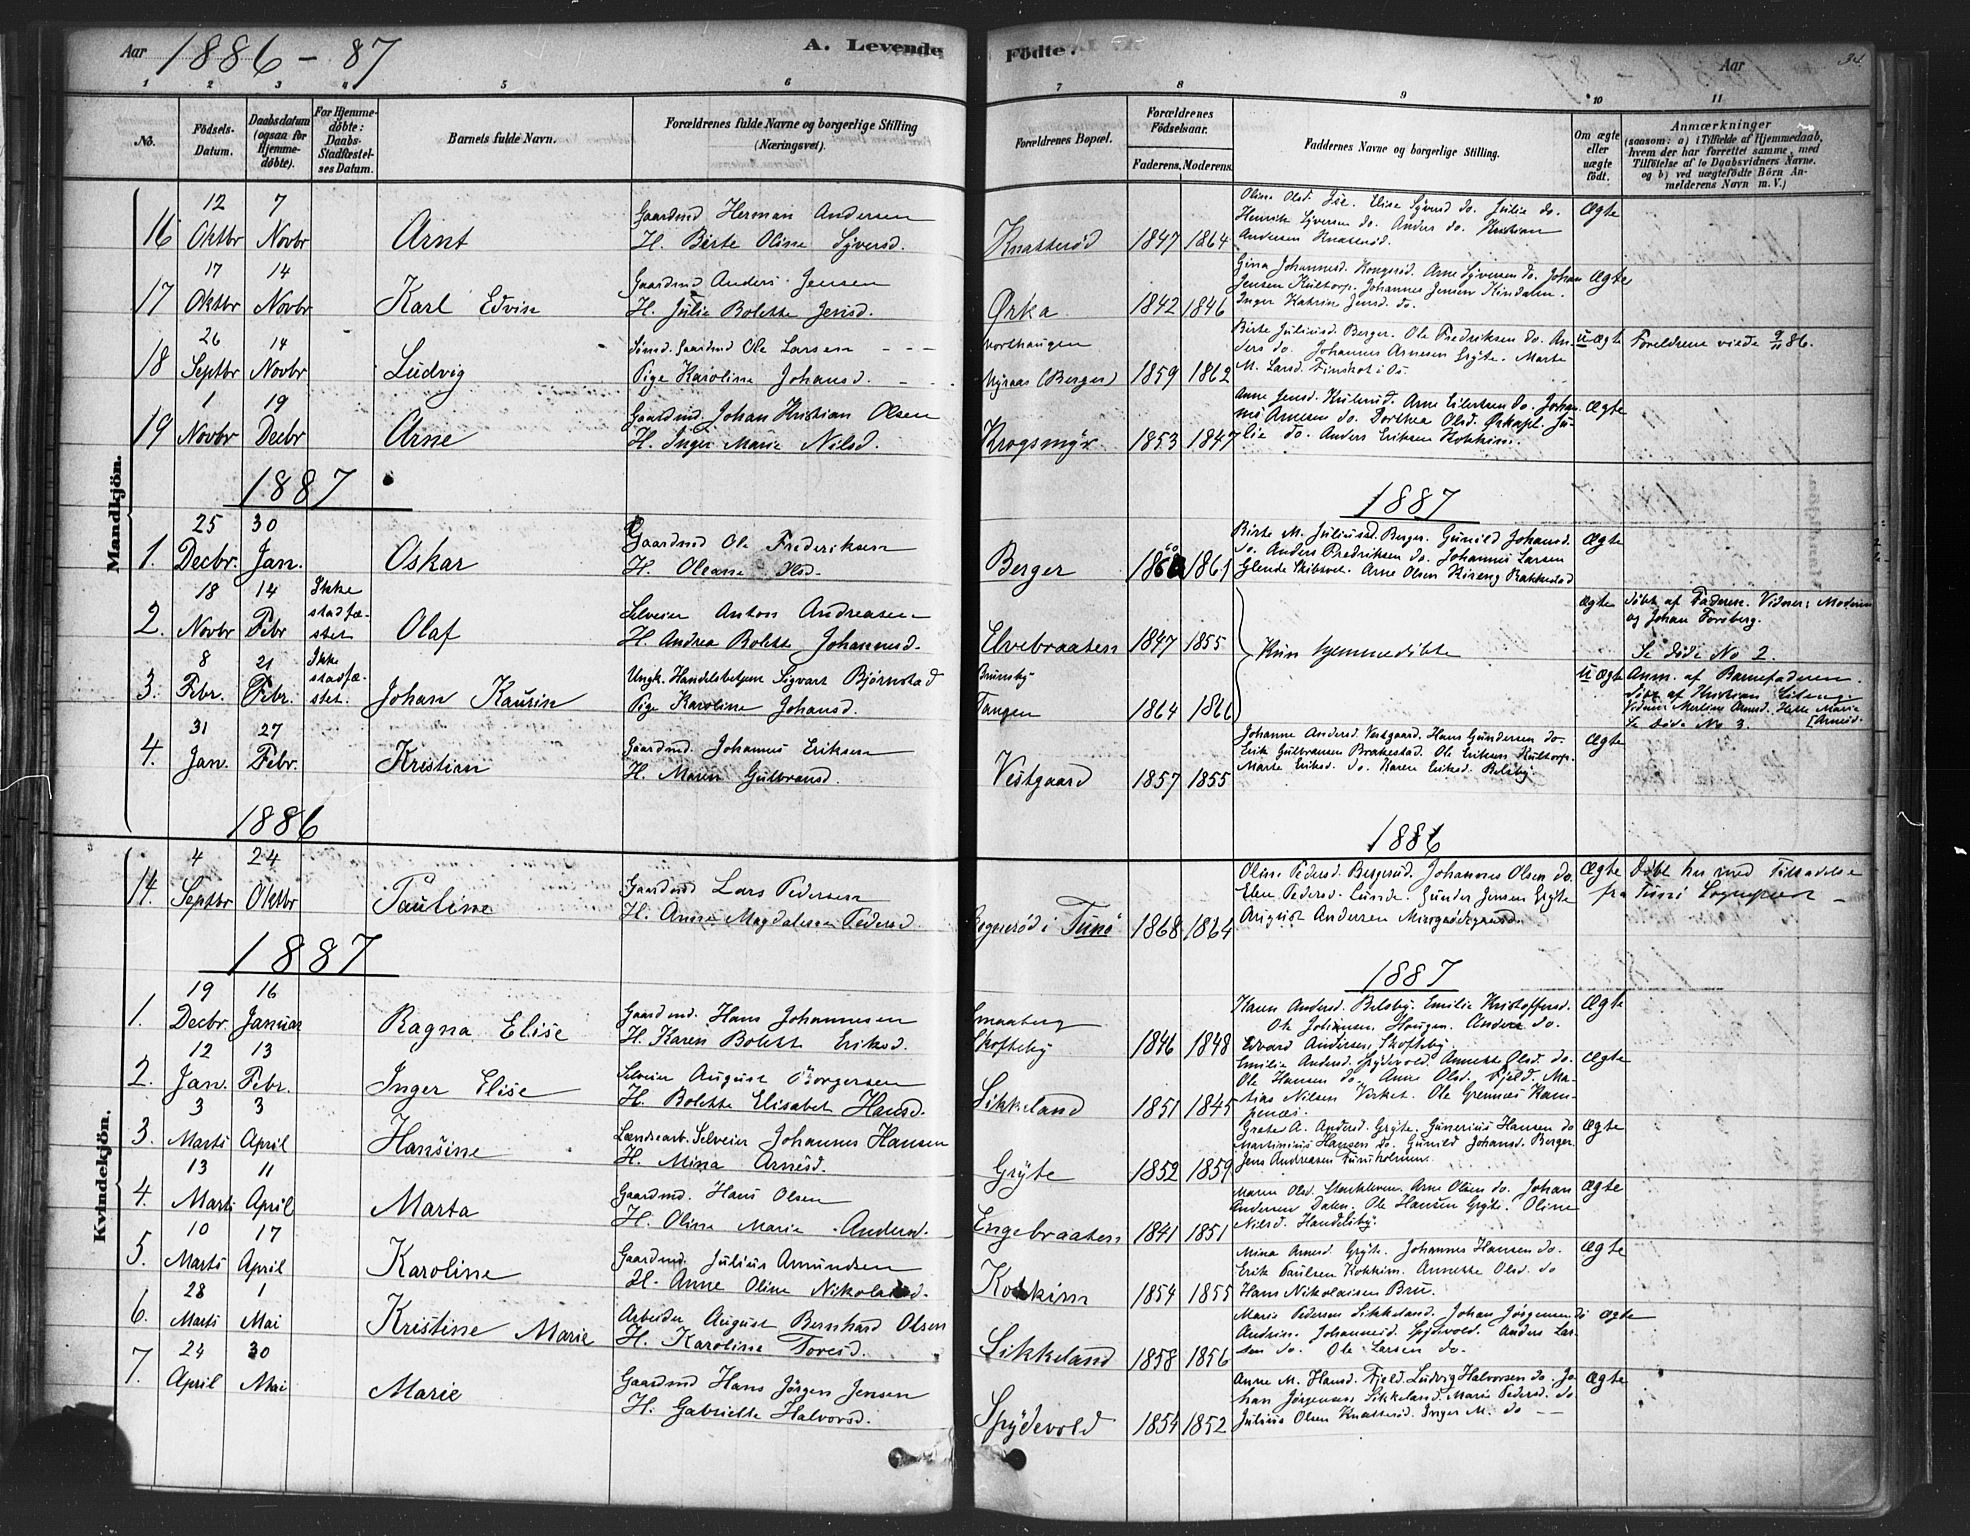 Aar 1886 – 87
A. Levende Födte.
Aar
34.
1 2 3 4 5 6 7 8 9 10 11
No.
Födsels-Datum.
Daabsdatum (ogsaa for Hjemme-döbte).
For Hjemme-döbte: Daabs-Stadfæstel-ses Datum.
Barnets fulde Navn.
Forældrenes fulde Navne og borgerlige Stilling (Næringsvei).
Forældrenes Bopæl.
Forældrenes Födselsaar.
Faderens. Moderens.
Faddernes Navne og borgerlige Stilling.
Om ægte eller uægte födt.
Anmærkninger
(saasom: a) i Tilfælde af Hjemmedaab, hvem der har forrettet samme, med Tilföielse af to Daabsvidners Navne. og b) ved uægtefödte Börn Anmelderens Navn m. V.)
Mandkjön.
16 12 Oktbr 7 Novbr Arnt
Gaardmd Herman Andersen
H. Birte Oline Syversd.
Knatterød 1847 1864
Oline Olsd. Elise Syversd do. Julie do.
Henrik Syversen do. Anders do. Kristian
Andersen Knatterød.
Ægte
17 17 Oktbr 14 Novbr Karl Edvin
Gaardmd Anders Jensen
H. Julie Bolette Jensd.
Ørka 1842 1846
Gina Johannesd. Kongerød. Arne Syversen do. Johan
Jensen Kultorp. Johannes Jensen
Inger Katrine Jensd. do.
Ægte
18 26 Septbr 14 Novbr Ludvig
Gaardmd Ole Larsen
Pige Karoline Johansd.
Nyraas (Berger) 1859 1862
Birte Juliusd. Berger. Ole Fredriksen do. An-
ders do. Johannes Arnesen Gryte. Marte
M. Larsd.
Uægte
Foreldrene viede 9/11 86.
19 1 Novbr 19 Decbr Arne
Gaardmd. Johan Kristian Olsen
H. Inger Marie Nilsd.
Krogsmyr 1853 1847
Anne Jensd. Arne Eilertsen do. Johan-
nes Arnesen do. Dorthea Olsd. Ju-
lie do. Anders Eriksen Kokkim.
Ægte
1887
1887
1. 25 Decbr. 30 Jan. Oskar
Gaardmd Ole Frederiksen
H. Oleane Olsd.
Berger 1860 1861
Birte M. Juliusd. Berger. Gunild Johansd.
do. Anders Fredriksen do. Johannes Larsen
Glende Skibtvet. Arne Olsen Rakkestad
Ægte
2. 18 Novbr 14 Febr Ikke stadfæ-stet Olaf
Selveier Anton Andreasen
H. Andrea Bolette Johannesd.
Elvebraaten 1847 1855
Kun hjemmedöbte
Ægte
döbt af Faderen. Vidner: Moderen
og Johan Forsberg.
Se döde No 2.
3. 8 Febr. 21 Febr. Ikke stadfæ-stet. Johan Kaurin
Ungk. Handelsbetjent Sigvart Bjørnstad
Pige Karoline Johansd.
Tangen 1864 1866
Uægte
Anm. af Barnefaderen.
döbt af Kristian
Se döde No 3.
4. 31 Jan. 27 Febr. Kristian
Gaardmd. Johannes Eriksen
H. Maren Gulbransd.
Vestgaard 1857 1855
Johanne Andersd. Vestgaard. Hans Gundersen do.
Erik Gulbransen Brakestad. Ole Eriksen Kultorp.
Marte Eriksd. do. Karen Eriksd. Belsby.
Ægte
1886
1886
Kvindekjön.
14. 4 Septbr 24 Oktbr Pauline
Gaardmd Lars Pedersen
H. Anne Magdalene Pedersd.
i Tune 1868 1864
Oline Pedersd. Bergerud. Johannes Olsen do.
Elen Pedersd. Lunde. Gunder Jensen Gryte
August Andersen
Ægte
Døbt her med Tilladelse
fra Tune Sogneprest
1887
1887
1. 19 Decbr 16 Januar Ragna Elise
Gaardmd. Hans Johannesen
H. Karen Bolette Eriksd.
Smaaberg Skofteby 1846 1848
Karen Andersd. Belsby. Emilie Kristoffersd.
Ole Johansen Haugen. Anders do.
Edvard Andersen, Skofteby.
Ægte
2. 12 Jan. 13 Febr. Inger Elise
Selveier August Borgersen
H. Bolette Elisabet Hansd.
Sikkeland 1851 1845
Emilie Andersd. Spydevold. Annette Olsd. do.
Ole Hansen do. Anne Olsd. Fjeld. Ma-
tias Nilsen Virket. Ole Grennes Kam-
penæs.
Ægte
3. 3 Marts 3 April Hansine
Landsarb. Selveier Johannes Hansen
H. Mina Arnesd.
Gryte 1852 1859
Grete A. Andersd. Gryte. Gunerius Hansen do
Martinius Hansen do. Gunild Johansd. Berger
Jens Andreasen
Ægte
4. 13 Marts 11 April Marta
Gaardmd. Hans Olsen
H. Oline Marie Andersd.
Engebraaten 1841 1851
Maren Olsd. Arne Olsen do. Johan
Andersen Dalen. Ole Hansen Gryte. Oline
Nilsd. Handelsby.
Ægte
5. 10 Marts 17 April Karoline
Gaardmd. Julius Amundsen
H. Anne Oline Nikolaisd.
Kokkim 1854 1855
Mina Arnesd. Gryte. Johannes Hansen do.
Erik Paulsen Kokkim. Annette Olsd. do
Hans Nikolaisen Bru.
Ægte
6. 28 Marts 1 Mai Kristine Marie
Arbeider August Bernhard Olsen
H. Karoline Toresd.
Sikkeland 1858 1856
Marie Pedersen Sikkeland. Johan Jørgensen do
Andrine Johannesd. Spydevold. Anders Lar-
sen do. Ole Larsen do.
Ægte
7. 24 April 30 Mai Marie
Gaardmd Hans Jörgen Jensen
H. Gabriette Halvorsd.
Spydevold 1854 1852
Anne M. Hansd. Fjeld. Ludvig Halvorsen do. Jo-
han Jørgensen Sikkeland. Marie Pedersd. do
Julius Olsen Knatterød. Inger M. do
Ægte